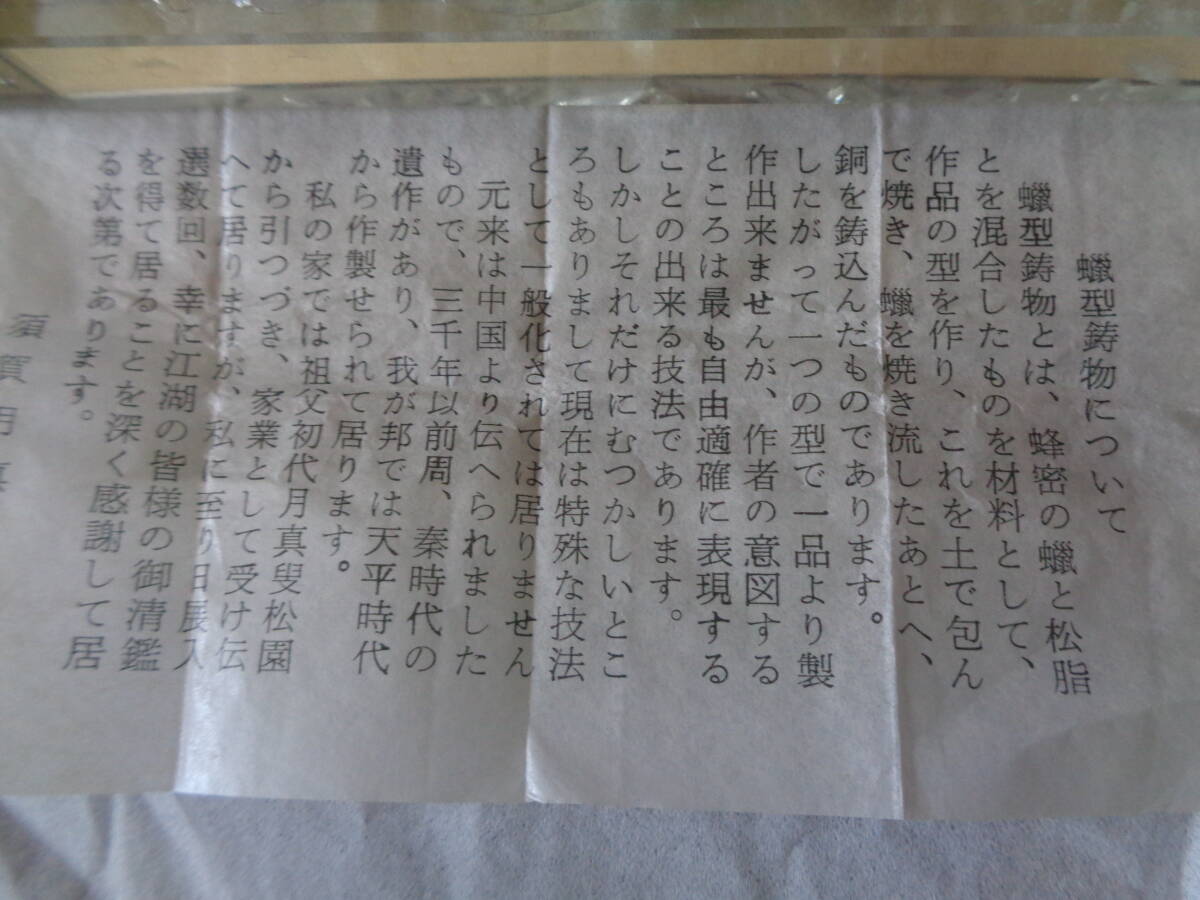 蠟型鋳物について
蠟型鋳物とは、蜂密の蠟と松脂
とを混合したものを材料として、
作品の型を作り、これを土で包ん
で焼き、蠟を焼き流したあとへ、
銅を鋳込んだものであります。
したがって一つの型で一品より製
作出来ませんが、作者の意図する
ところは最も自由適確に表現する
ことの出来る技法であります。
しかしそれだけにむつかしいとこ
ろもありまして現在は特殊な技法
として一般化されては居りません
元来は中国より伝へられました
もので、三千年以前周、秦時代の
遺作があり、我が邦では天平時代
から作製せられて居ります。
私の家では祖父初代月真叟松園
から引つづき、家業として受け伝
へて居りますが、私に至り日展入
選数回、幸に江湖の皆様の御清鑑
を得て居ることを深く感謝して居
る次第であります。
須賀月真